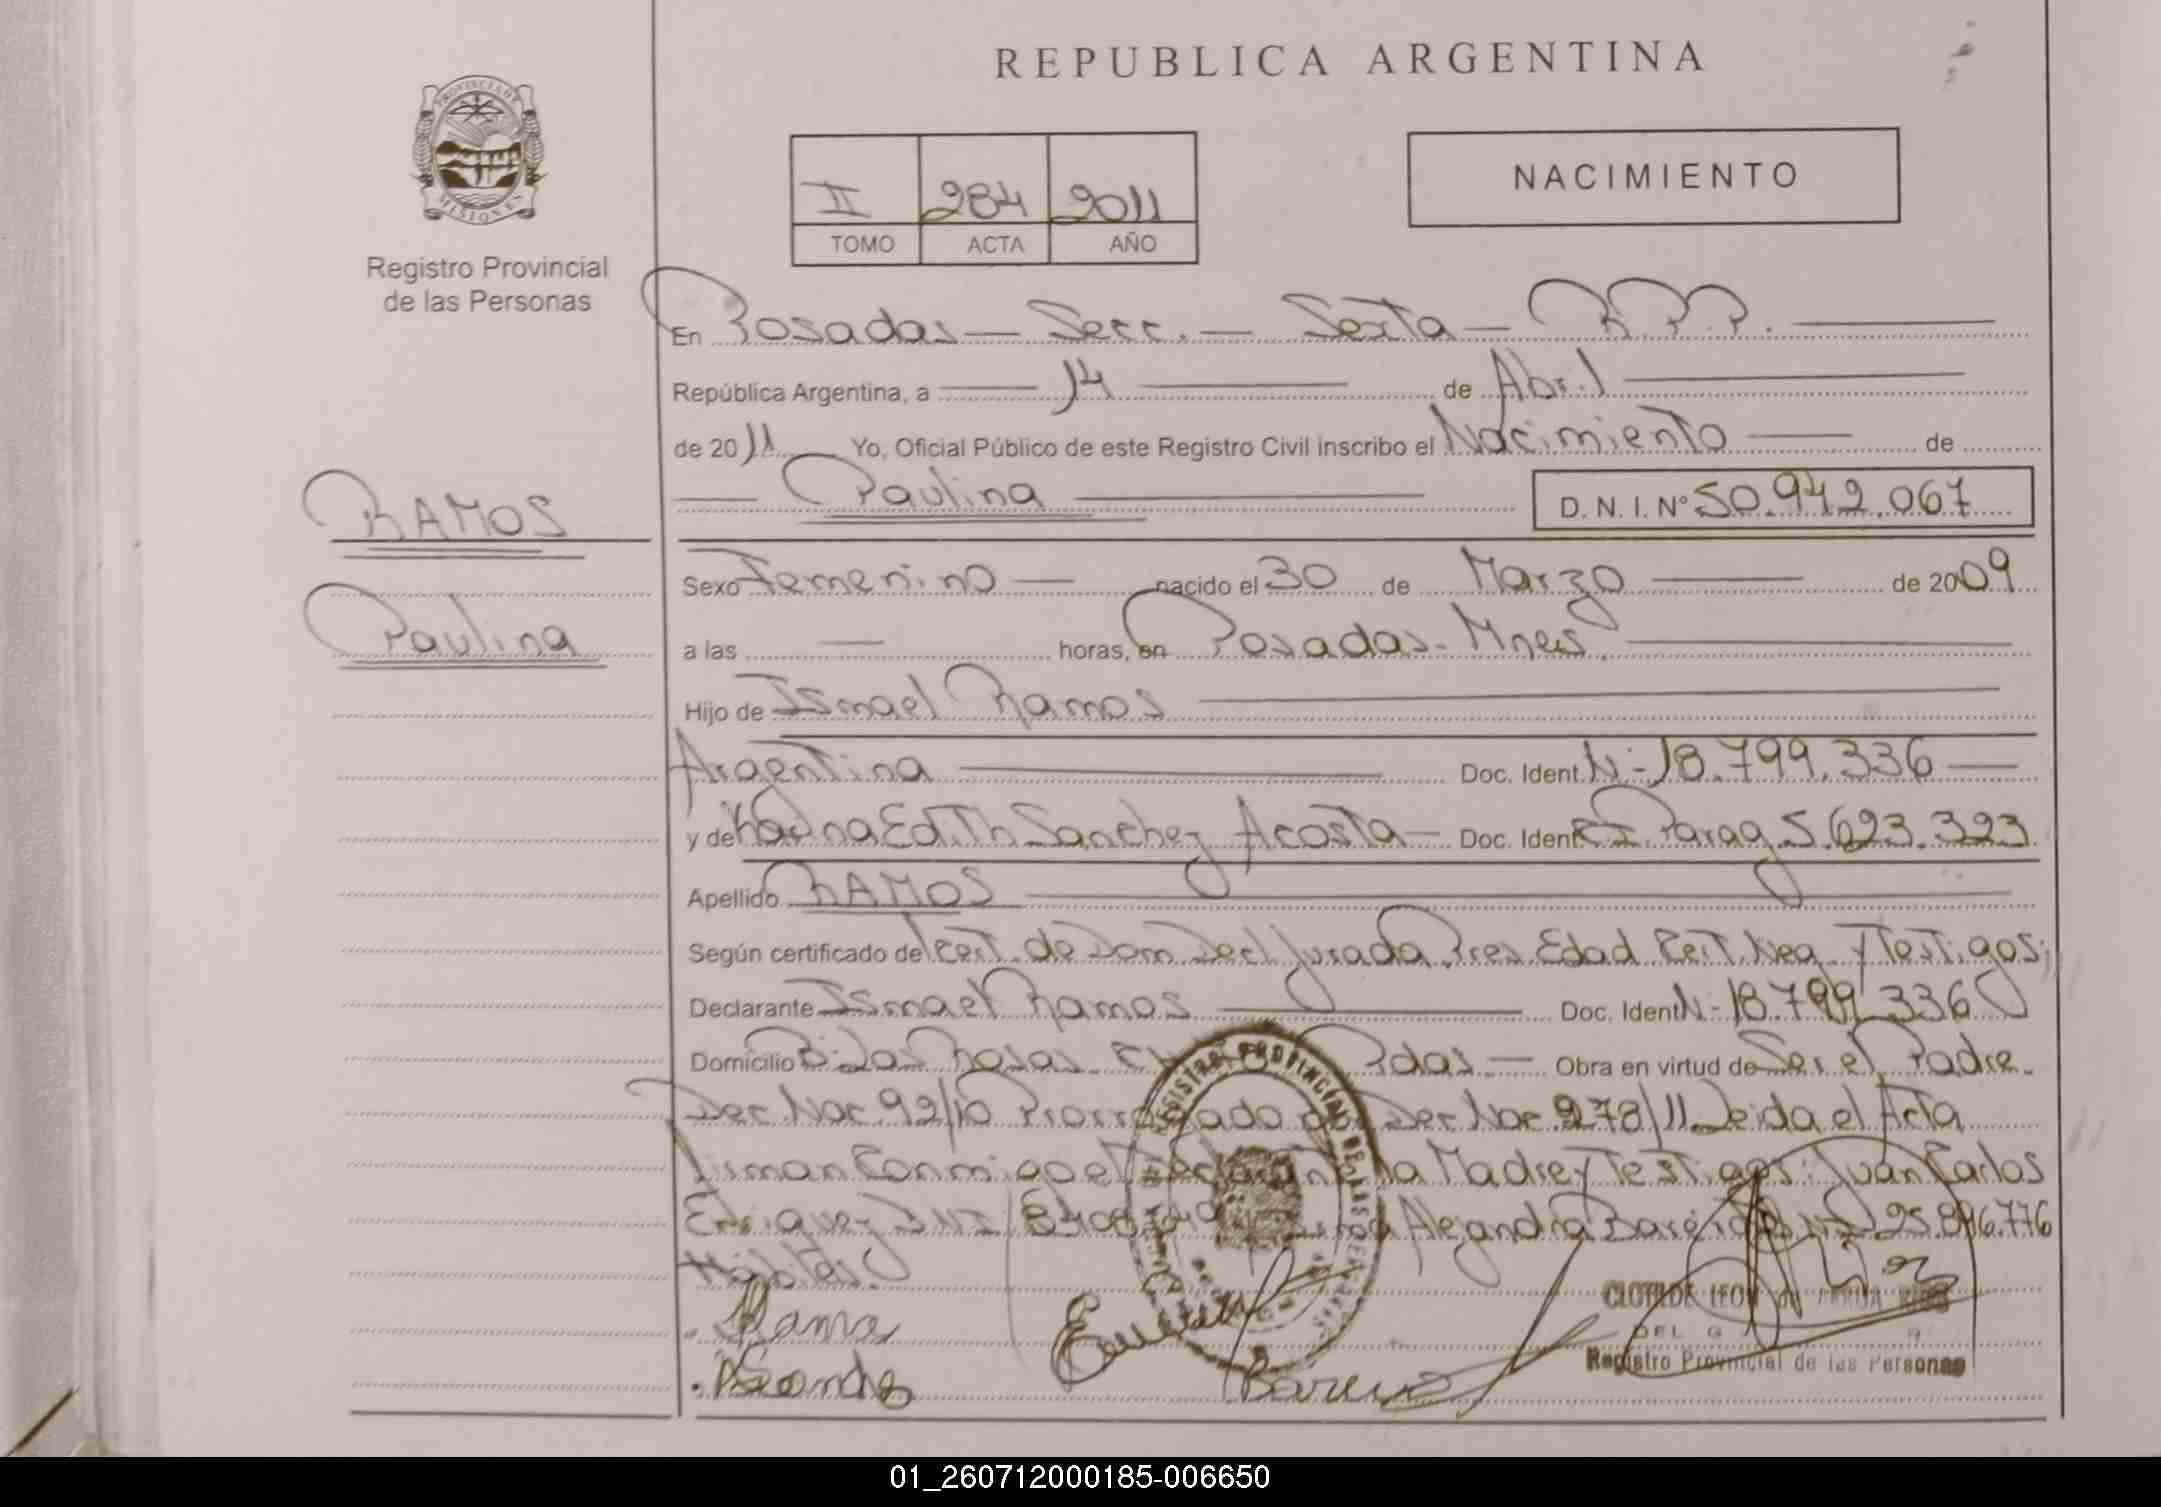 REPUBLICA ARGENTINA
PROVINCIA DE
MISIONES
Registro Provincial
de las Personas
II 284 2011
TOMO ACTA AÑO
NACIMIENTO
En Posadas — Secc. — Sexta — R.P.P.
República Argentina, a 14 de Abril
de 2011 Yo, Oficial Público de este Registro Civil inscribo el Nacimiento de
Paulina D. N. I. Nº 50.942.067
RAMOS
Paulina
Sexo Femenino nacido el 30 de Marzo de 2009
a las — horas, en Posadas - Mnes.
Hijo de Ismael Ramos
Argentina Doc. Ident. Nº 18.799.336
y de Edith Sanchez Acosta — Doc. Ident. CI Parag 5.623.323
Apellido RAMOS
Según certificado de Cert. de Dom Decl Jurada Pres Edad Cert. Neg. y Testigos;
Declarante Ismael Ramos Doc. Ident. Nº 18.799.336
Domicilio Bº Las Rosas Pdas — Obra en virtud de Ser el Padre.
Dec. Nac. 92/10 Prorrogado por Dec Nac. 278/11 Leida el Acta
Firman Conmigo el Declarante la Madre y Testigos: Juan Carlos
Alejandra
REGISTRO PROVINCIAL DE LAS PERSONAS
CLOTILDE LEON de
Registro Provincial de las Personas
01_260712000185-006650